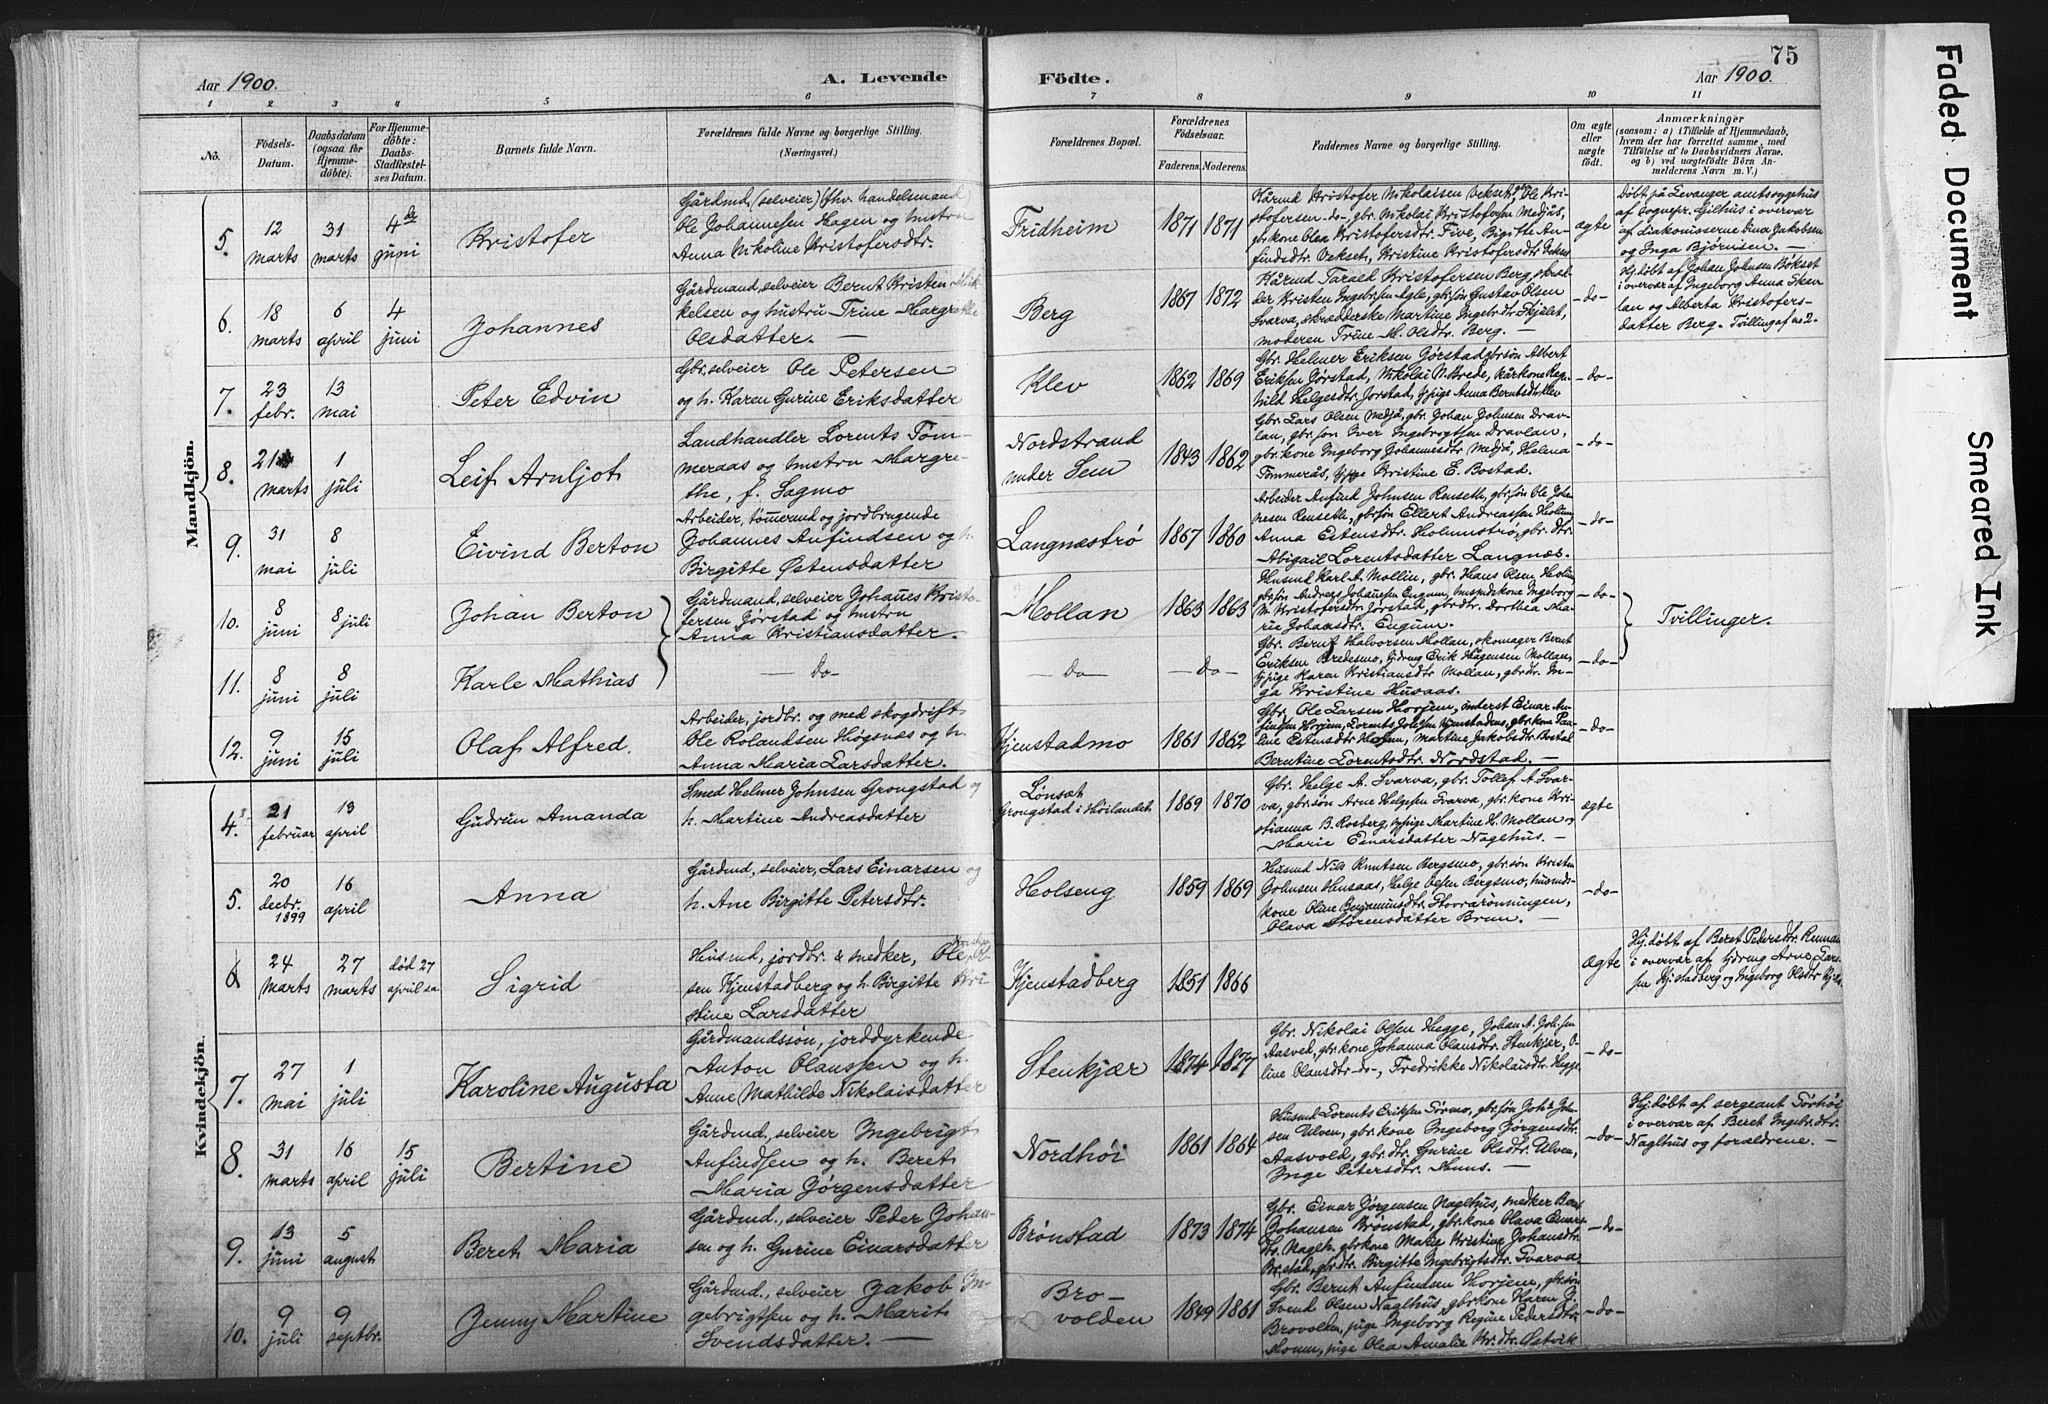 75
Aar 1900.
A. Levende Födte.
Aar 1900.
1 2 3 4 5 6 7 8 9 10 11
No.
Födsels-Datum.
Daabsdatum (ogsaa for Hjemmedöbte).
For Hjemmedöbte: Daabs-Stadfæstelses Datum.
Barnets fulde Navn.
Forældrenes fulde Navne og borgerlige Stilling.
(Næringsvei.)
Forældrenes Bopæl.
Forældrenes Födselsaar.
Faderens. Moderens.
Faddernes Navne og borgerlige Stilling.
Om ægte eller uægte födt.
Anmærkninger
(saasom: a) i Tilfælde af Hjemmedaab, hvem der har forrettet samme, med Tilföielse af to Daabsvidners Navne, og b) ved uægtefödte Börn Anmelderens Navn m. V.)
Mandkjön.
5. 12 marts 31 marts 4de juni Kristofer
Gårdmd, (selveier) (fhv. handelsmand)
Ole Johannesen Hagen og hustru
Anna Nikoline Kristofersdtr.
Fridheim 1871 1871
Kårmd Kristofer Nikolaisen Vekset, gbr. Ole Kri-
stofersen -do-, gbr. Nikolai Kristofersen Medjås,
gbr.kone Olea Kristofersdtr. Five, Birgitte An-
findsdtr. Vekset, Kristine Kristofersdtr. Vekset
ægte
Døbt på Levanger amtssygehus
af sognepr. Gilhus i overvær
af diakonisserne Lina Jakobsen
og Inga Bjørnsen. —
6. 18 marts 6 april 4 juni Johannes
Gårdmand, selveier Bernt Kristen Mik-
kelsen og hustru Trine Margrethe
Olsdatter. —
Berg 1867 1872
Kårmd Tarald Kristofersen Berg, skræd-
der Kristen Ingebrigtsen Agle, gbr.søn Gustav Olsen
Svarva, skrædderske Martine Ingebr.dtr. Skjålet,
moderen Trine M. Olsdtr. Berg. —
- do -
Hj. døbt af Johan Johnsen Bökset
i overvær af Ingeborg Anna Sken-
lan og Alberta Kristofers-
datter Berg. Tvilling af no 2 -
7. 23 febr. 13 mai Peter Edvin
Gbr. selveier Ole Petersen
og h. Karen Gurine Eriksdatter
Klev 1862 1869
Gbr. Helmer Eriksen Gjørstad, gbrsön Albert
Eriksen Gjørstad, Nikolai N. Brede, kårkone Rag-
hild Helgesdtr. Jørstad, tj.pige Anna Berntsdtr. Klev
- do -
8. 21 marts 1 juli Leif Arnljot
Landhandler Lorents Töm-
meraas og hustru Margre-
the, f. Sagmo
Nordstrand under Sem 1843 1862
Gbr. Lars Olsen Medjå, gbr. Johan Johnsen Drav-
lan, gbr. søn Iver Ingebrigtsen Dravlan,
gbr.kone Ingeborg Johannesdtr. Medjå, Helena
Tömmerås, tj.pige Kristine E. Bostad.
- do -
9. 31 mai 8 juli Eivind Berton
Arbeider, tömmermd og jordbrugende
Johannes Anfindsen og h.
Birgitte Østensdatter
Langnæstrø 1867 1860
Arbeider Anfind Johnsen Renseth, gbr.søn Ole Johan-
nesen Renseth, gbr.søn Ellert Andreassen Holm,
Anna Estensdtr. Holmstrø, gbr. dtr.
Abigail Lorentsdatter Langnæs.
- do -
10. 8 juni 8 juli Johan Berton
Gårdmand, selveier Johannes Kristo-
fersen Jørstad og hustru
Anna Kristiansdatter. —
Mollan 1863 1863
Husmd Karl A. Mollin, gbr. Hans Olsen Holm,
gbrsøn Andreas Johansen Engum, husmdskone Ingeborg
M. Kristofersdtr. Jørstad, gbrdtr. Dorthea Ma-
rie Johansdtr. Engum.
- do -
Tvillinger.
11. 8 juni 8 juli Karle Mathias
— Do — — Do — — Do —
Gbr. Bernt Halvorsen Mollan, skomager Bernt
Eriksen Bredesmo, tj.dreng Erik Hågensen Mollan,
tj.pige Karen Kristiansdtr Mollan, gbr.dtr. In-
ga Kristine Husaas.
- do -
12. 9 juni 15 juli Olaf Alfred.
Arbeider, jordbr. og med skogdrift
Ole Rolandsen Høgsnæs og h.
Anna Maria Larsdatter.
Kjenstadmo 1861 1862
Gbr. Ole Larsen Horjem, inderst Einar An-
findsen Horjem, Lorents Johnsen Kjenstadnes, gbr.kone Pau-
line Estensdtr. Horjem, Martine Jakobsdtr. Bostad
Berntine Lorentsdtr. Nordstad.
- do -
Kvindekjön.
4. 21 februar 13 april Gudrun Amanda
Smed Helmer Johnsen Grongstad og
h. Martine Andreasdatter
Lönsæt
Grongstad i Höilandet 1869 1870
Gbr. Helge A. Svarva, gbr. Tollef A. Svar-
va, gbr.søn Arne Helgesen Svarva, gbr.kone Kri-
stianna B. Rosberg, tj.pige Martine H. Mollan og
Marie Einarsdatter Naglhus. —
ægte
5. 20 decbr. 1899 16 april Anna
Gårdmd, selveier, Lars Einarsen og
h. Ane Birgitte Petersdtr.
Holseng 1859 1869
Husmd Nils Knutsen Bergsmo, gbr.søn Kristen
Johnsen Husaas, Helge Olsen Bergsmo, husmds-
kone Oline Benjaminsdtr. Storrarönningen,
Olava Störensdatter Brun. —
- do -
6 24 marts 27 marts död 27 april s.a. Sigrid
Husmd, jordbr. & snedker, Ole Kristian
sen Kjenstadberg og h. Birgitte Kri-
stine Larsdatter
Kjenstadberg 1851 1866
ægte
Hj. døbt af Beret Pedersdtr. Runnan
i overvær af tj.dreng Arne Lars-
sen Kj.stadberg og Ingeborg Olsdtr
7. 27 mai 1 juli Karoline Augusta
Gårdmandssøn, jorddyrkende
Anton Olaussen og h.
Anne Mathilde Nikolaisdatter
Stenkjær 1874 1877
Gbr. Nikolai Olsen Hegge, Johan A. Johnsen
Aasved, gbr.kone Johanna Olausdtr. Stenkjær, O-
line Olausdtr -do-, Fredrikke Nikolaisdtr. Hegge
- do -
8. 31 marts 16 april 15 juli Bertine
Gårdmd., selveier Ingebrigt
Anfindsen og h. Beret
Maria Jörgensdatter
Nordhöi 1861 1864
Husmd Lorents Eriksen Törmo, gbr.søn Joh. John-
sen Ulven, gbr.kone Ingeborg Jørgensdtr.
Aasvold, gbr. dtr. Gurine Olsdtr. Ulven,
Inge Petersdtr. Muus. —
- do -
Hj. døbt af sergeant Törhöi
i overvær af Beret Ingebr.dtr.
Naglhus og forældrene. —
9. 13 juni 5 august Beret Maria
Gårdmd., selveier Peder Johan-
sen og h. Gurine Einarsdatter
Brönstad 1873 1874
Gbr. Einar Jørgensen Naglhus, snedker Bans
Johansen Brönstad, gbr.kone Olava Einars-
dtr. Naglh. gbr.kone Marie Kristine Johansdtr.
Br.stad, gbr.dtr. Birgitte Ingebrigtsdtr. Svarva
- do -
10. 9 juli 9 septbr. Jenny Martine
Gårdmd., selveier Jakob In-
gebrigtsen og h. Marit
Svendsdatter. —
Bro-
volden 1849 1861
Gbr. Bernt Anfindsen Horjem, gbr.søn
Svend Olsen Naglhus, gbr.kone Karen J.
Brovolden, pige Ingeborg Regine Pedersdtr.
Momm, pige Olea Amalie Kr.dtr. Østvik
- do -
Faded Document
Smeared Ink